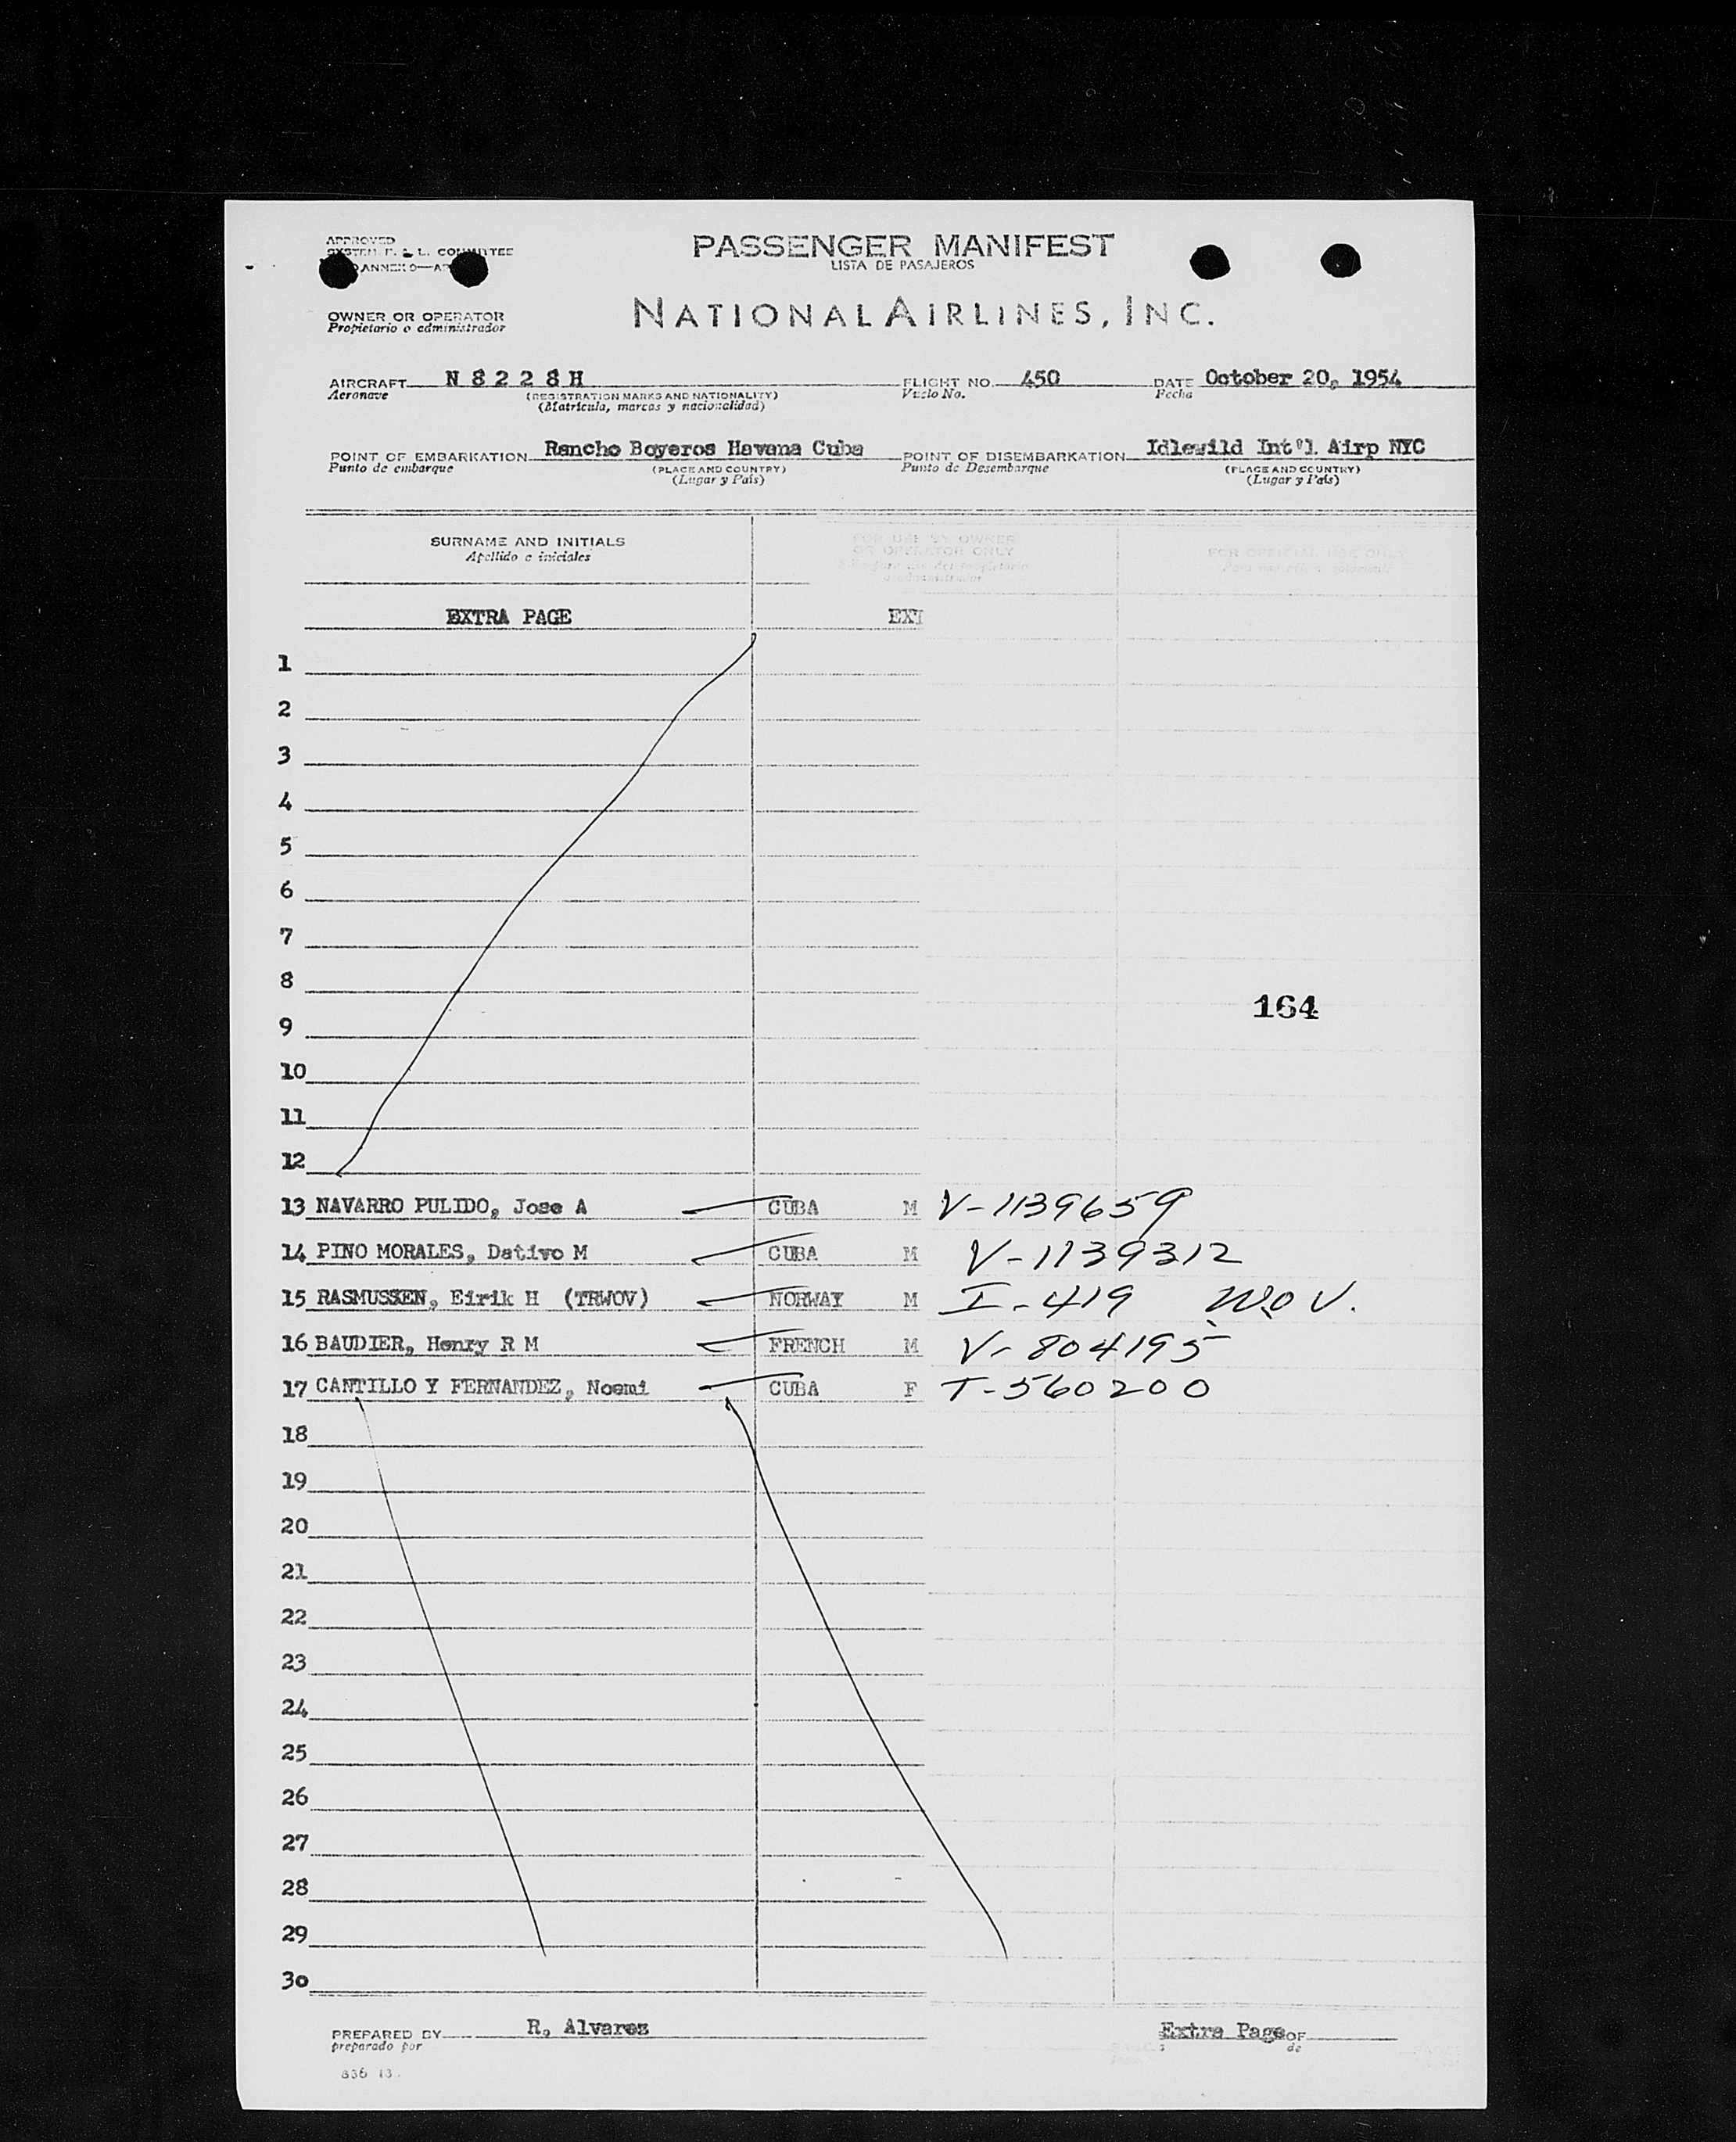 APPROVED
PASSENGER MANIFEST
LISTA DE PASAJEROS
OWNER OR OPERATOR
Propietario o administrador
NATIONAL AIRLINES, INC.
AIRCRAFT N 8 2 2 8 H FLIGHT NO. 450 DATE October 20, 1954
Aeronave (REGISTRATION MARKS AND NATIONALITY) Vuelo No. Fecha
(Matrícula, marcas y nacionalidad)
POINT OF EMBARKATION Rancho Boyeros Havana Cuba POINT OF DISEMBARKATION Idlewild Int'l Airp NYC
Punto de embarque (PLACE AND COUNTRY) Punto de Desembarque (PLACE AND COUNTRY)
(Lugar y País) (Lugar y País)
SURNAME AND INITIALS FOR USE BY OWNER OR OPERATOR ONLY FOR OFFICIAL USE ONLY
Apellido e iniciales
EXTRA PAGE EXT
1
2
3
4
5
6
7
8
164
9
10
11
12
13 NAVARRO PULIDO, Jose A CUBA M V-1139659
14 PINO MORALES, Dativo M CUBA M V-1139312
15 RASMUSSEN, Eirik H (TRWOV) NORWAY M I-419 W.O V.
16 BAUDIER, Henry R M FRENCH M V-804195
17 CANTILLO Y FERNANDEZ, Noemi CUBA F T-560200
18
19
20
21
22
23
24
25
26
27
28
29
30
PREPARED BY R, Alvarez Extra Page OF
preparado por de
836 13